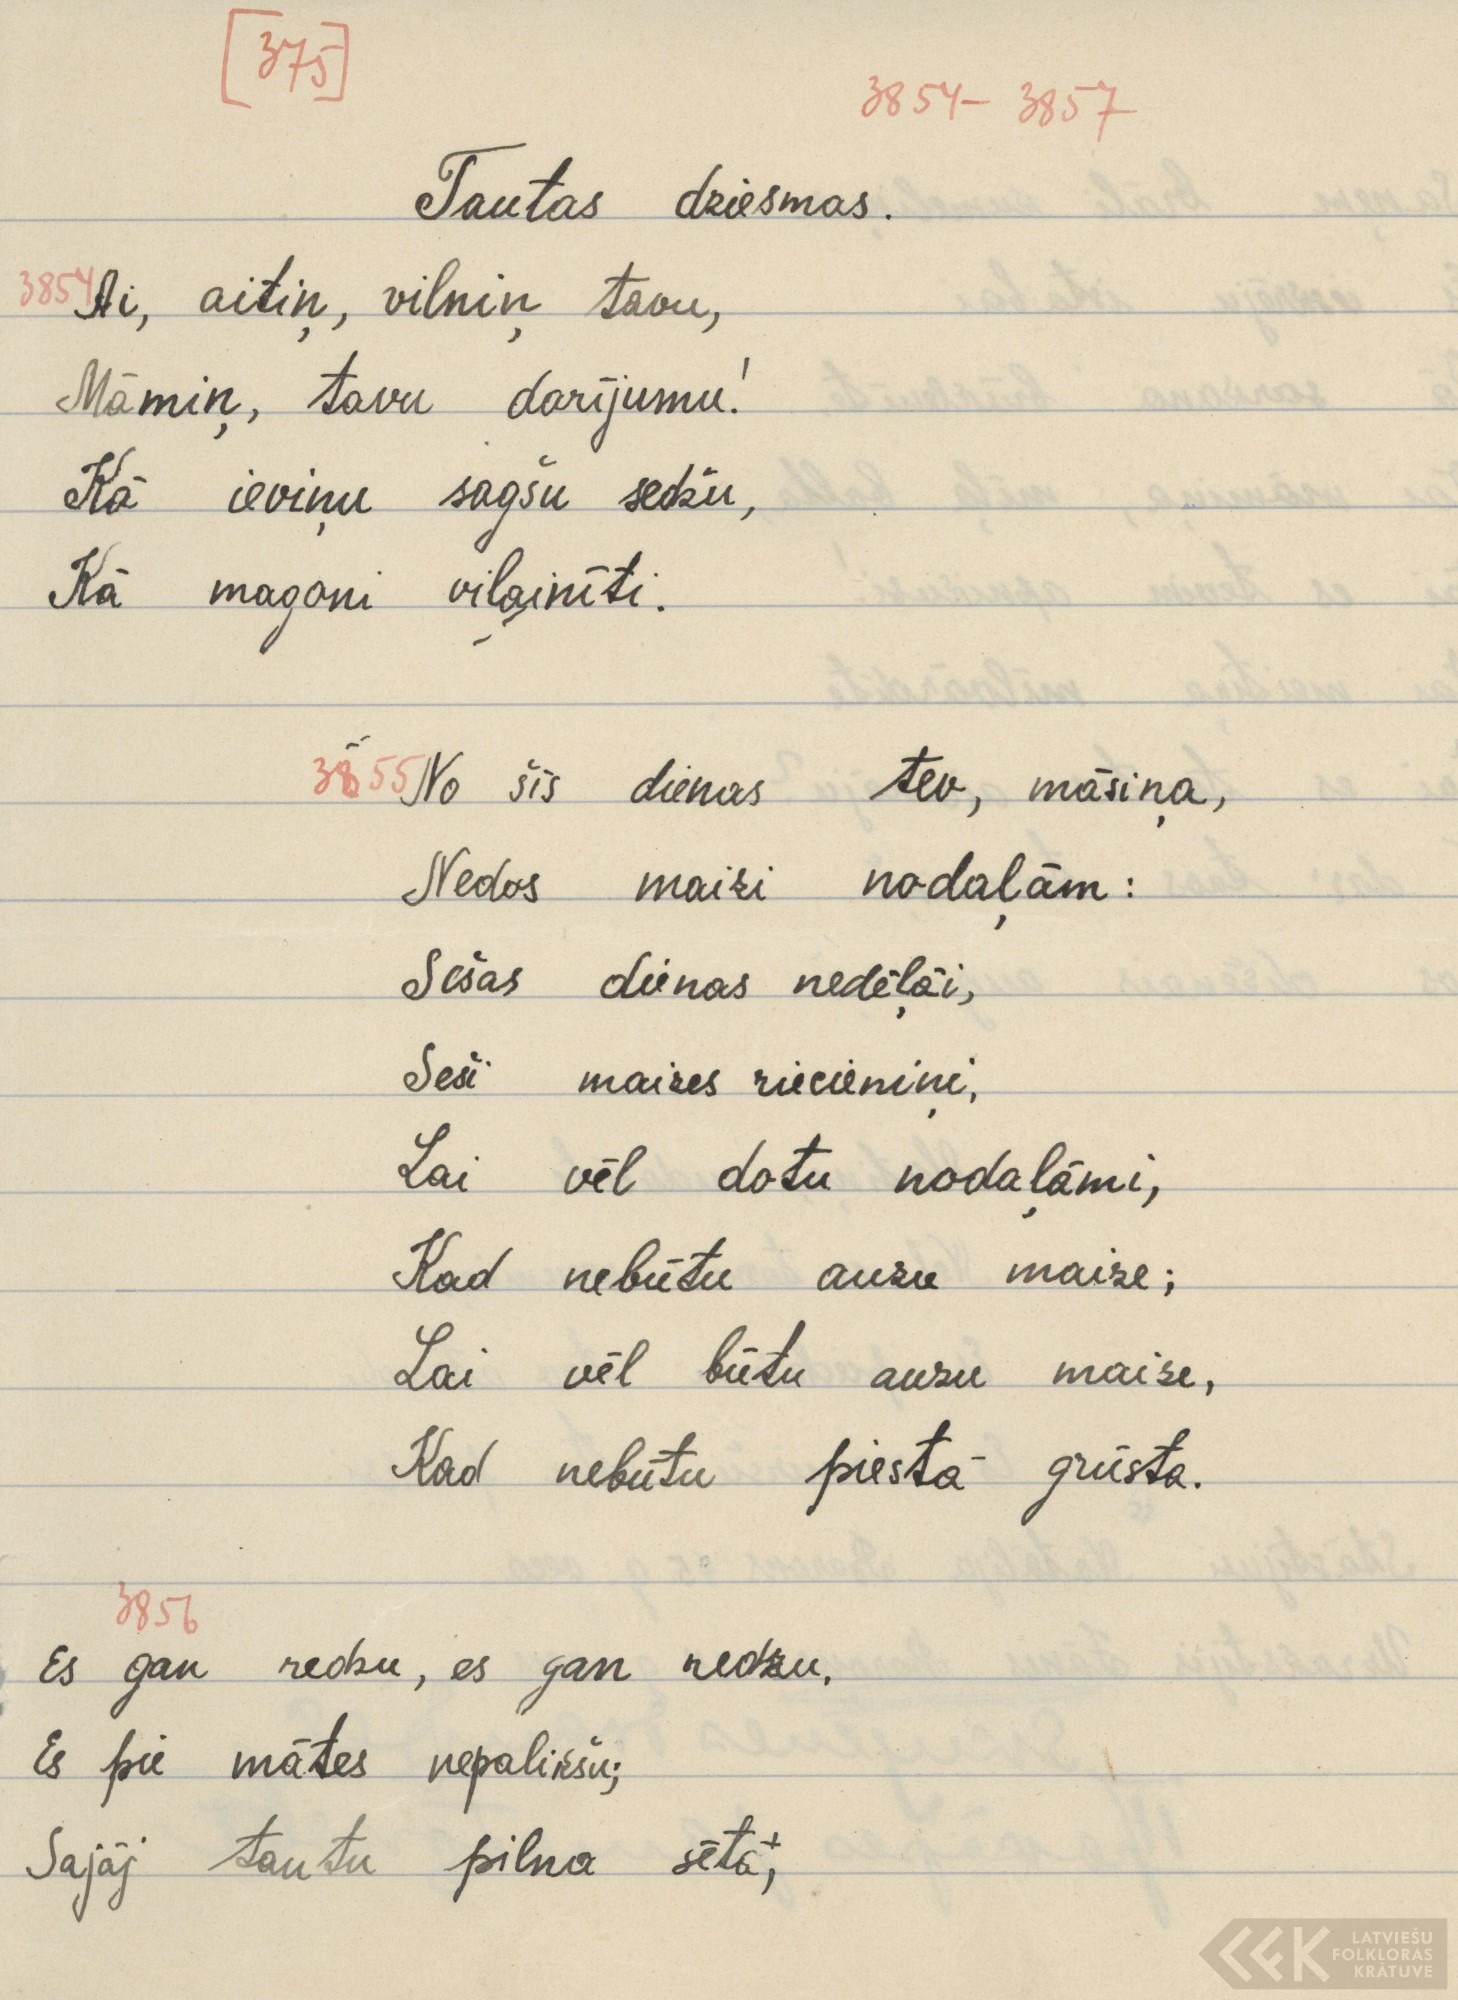 [375]
3854 - 3857
Tautas dziesmas.
3854 Ai, aitiņ, vilniņ tavu,
Māmiņ, tavu darījumu!
Kā ieviņu sagšu sedžu,
Kā magoni viļainīti.
3855 No šīs dienas tev, māsiņa,
Nedos maizi nodaļām:
Sešas dienas nedēļāi,
Seši maizes riecieniņi,
Lai vēl dotu nodaļāmi,
Kad nebūtu auzu maize;
Lai vēl būtu auzu maize,
Kad nebūtu piestā grūsta.
3856
Es gan redzu, es gan redzu,
Es pie mātes nepalikšu;
Sajāj tautu pilna sētā;
LATVIEŠU
FOLKLORAS
KRĀTUVE